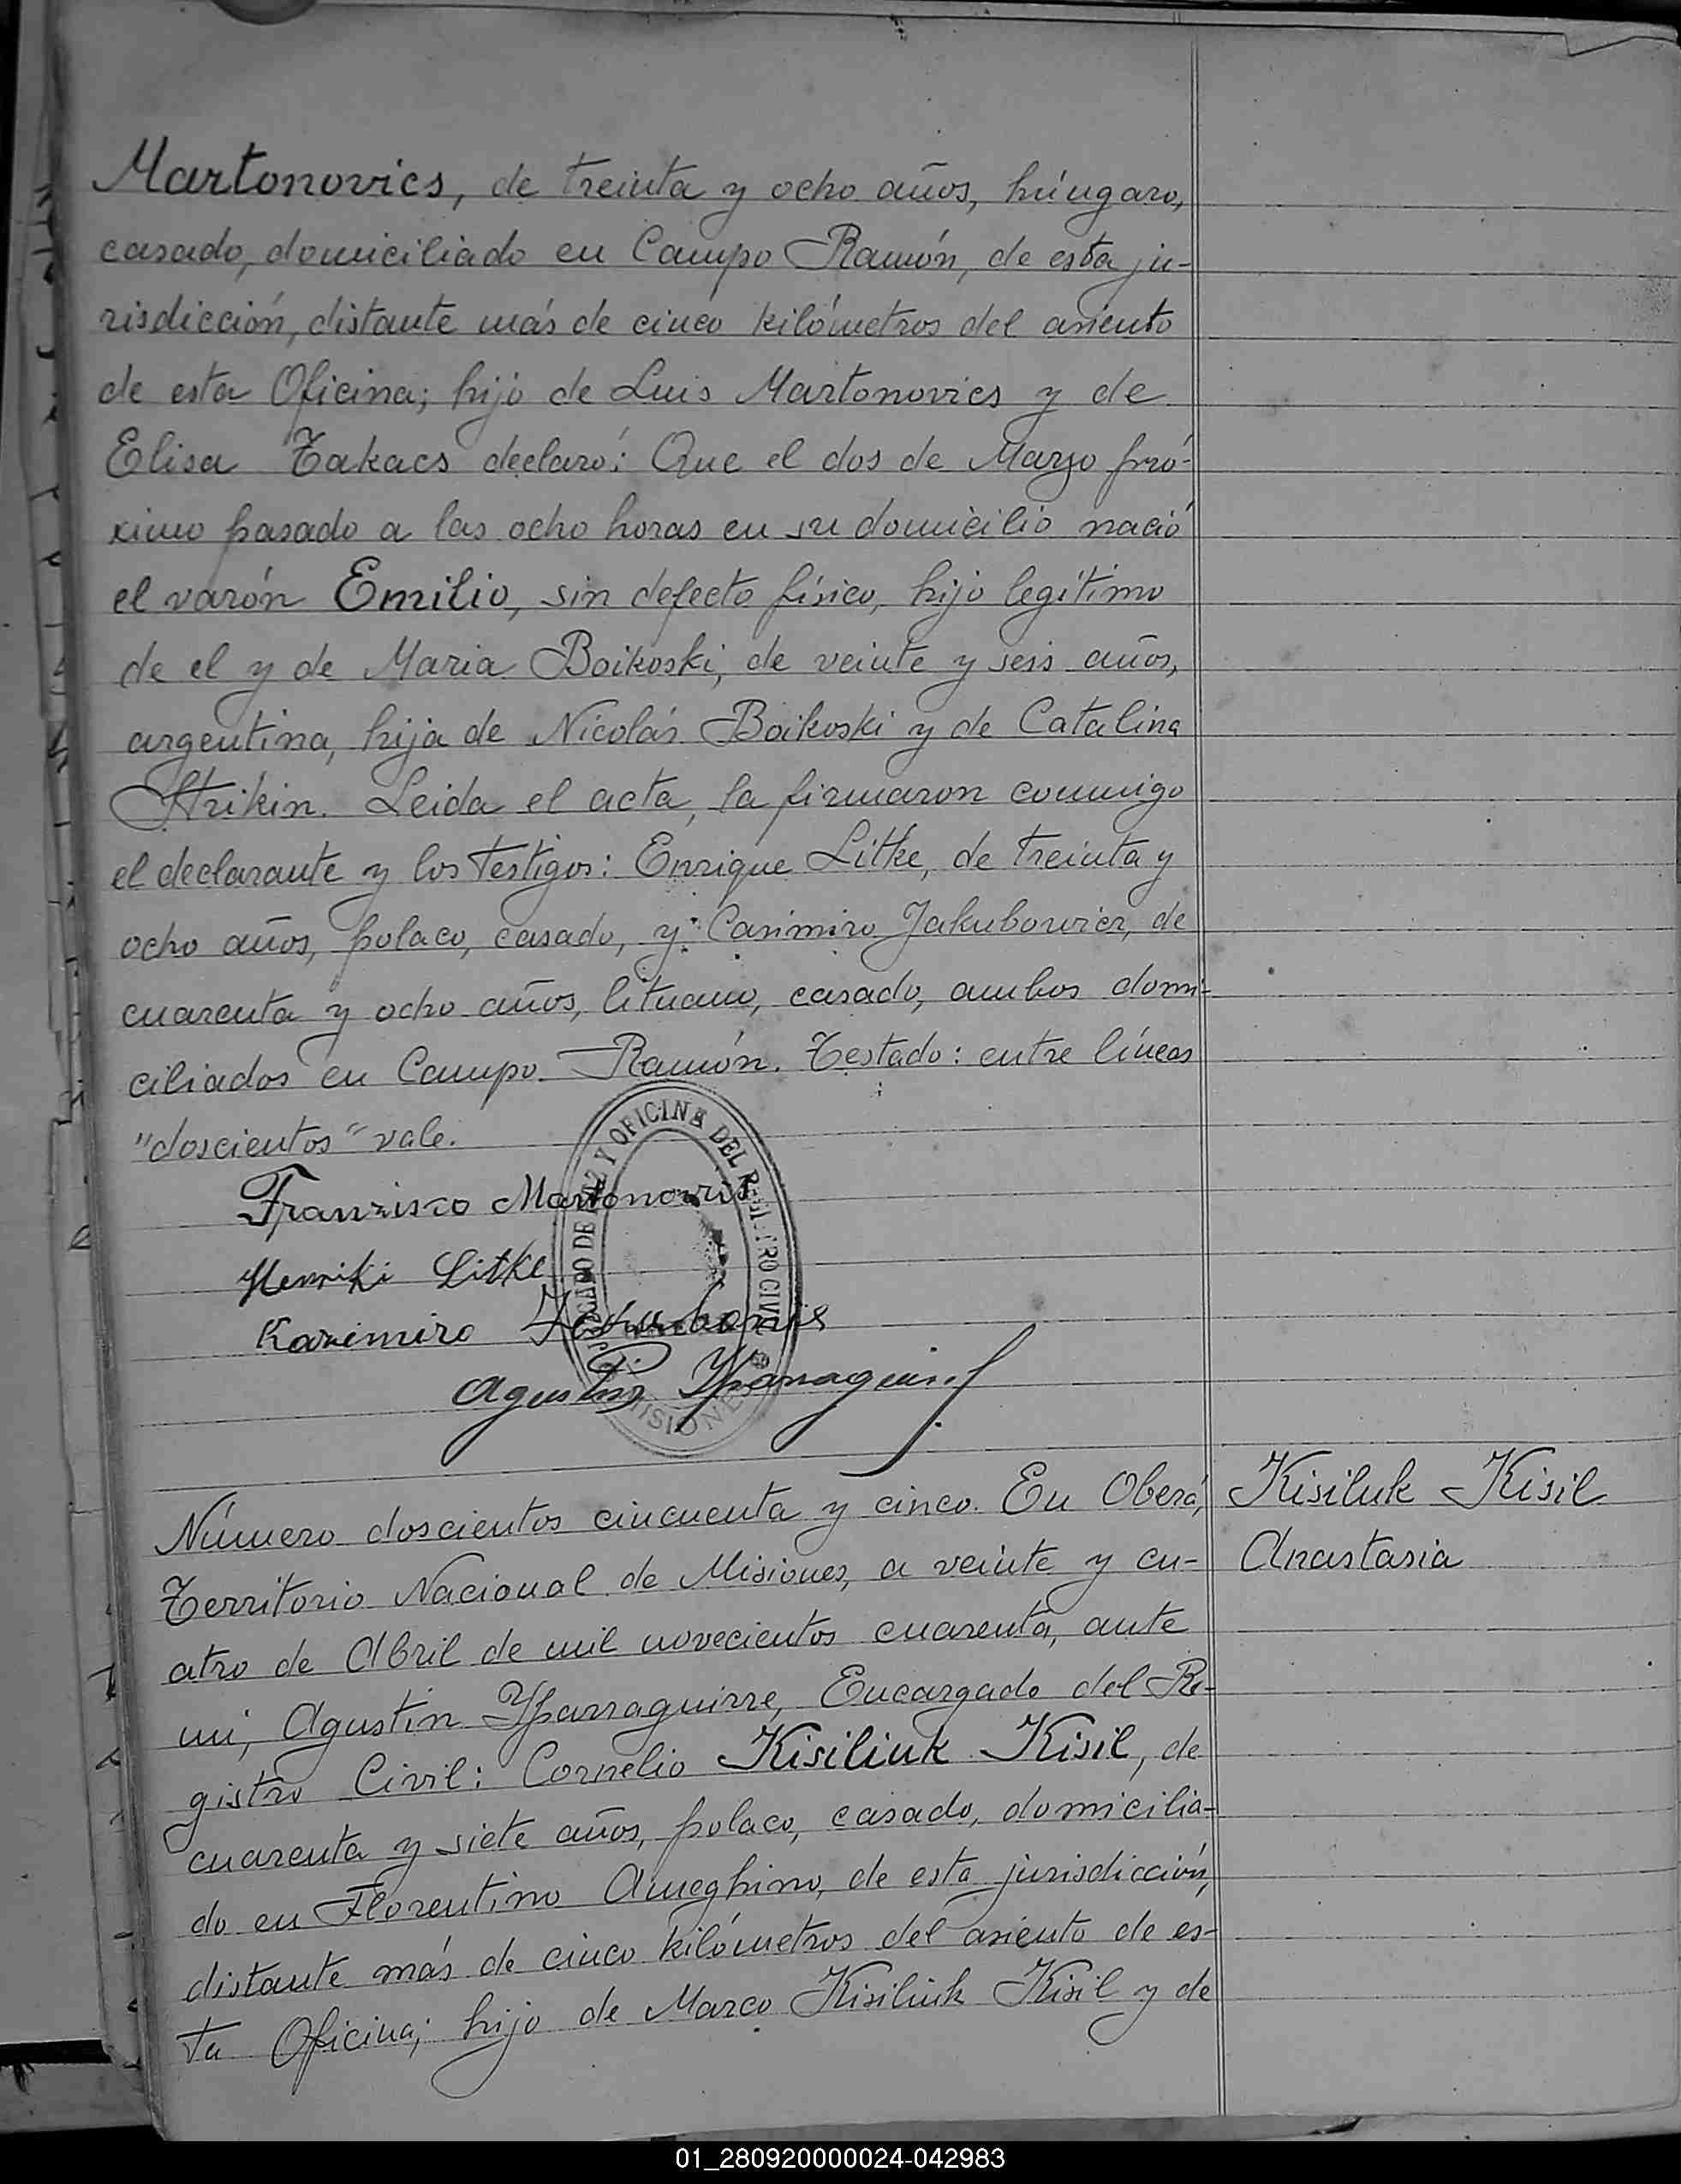 Martonovics, de treinta y ocho años, húngaro,
casado, domiciliado en Campo Ramón, de esta ju-
risdicción, distante más de cinco kilómetros del asiento
de esta Oficina; hijo de Luis Martonovics y de
Elisa Takacs declaró: Que el dos de Marzo pró-
ximo pasado a las ocho horas en su domicilio nació
el varón Emilio, sin defecto físico, hijo legítimo
de el y de Maria Boikoski, de veinte y seis años,
argentina, hija de Nicolás Boikoski y de Catalina
Strikin. Leida el acta, la firmaron conmigo
el declarante y los testigos: Enrique Litke, de treinta y
ocho años, polaco, casado, y Casimiro Jakubowicz, de
cuarenta y ocho años, lituano, casado, ambos domi-
ciliados en Campo Ramón. Testado: entre líneas
"doscientos" vale.
Franzisco Martonovris
Henriki Litke
Kazimiro
Agustin Yparraguirre
JUZGADO DE PAZ Y OFICINA DEL REGISTRO CIVIL
MISIONES
Número doscientos cincuenta y cinco. En Oberá,
Territorio Nacional de Misiones, a veinte y cu-
atro de Abril de mil novecientos cuarenta, ante
mi, Agustin Yparraguirre, Encargado del Re-
gistro Civil: Cornelio Kisiliuk Kisil, de
cuarenta y siete años, polaco, casado, domicilia-
do en Florentino Ameghino, de esta jurisdicción,
distante más de cinco kilómetros del asiento de es-
ta Oficina; hijo de Marco Kisiliuk Kisil y de
Kisiluk Kisil
Anastasia
01_280920000024-042983